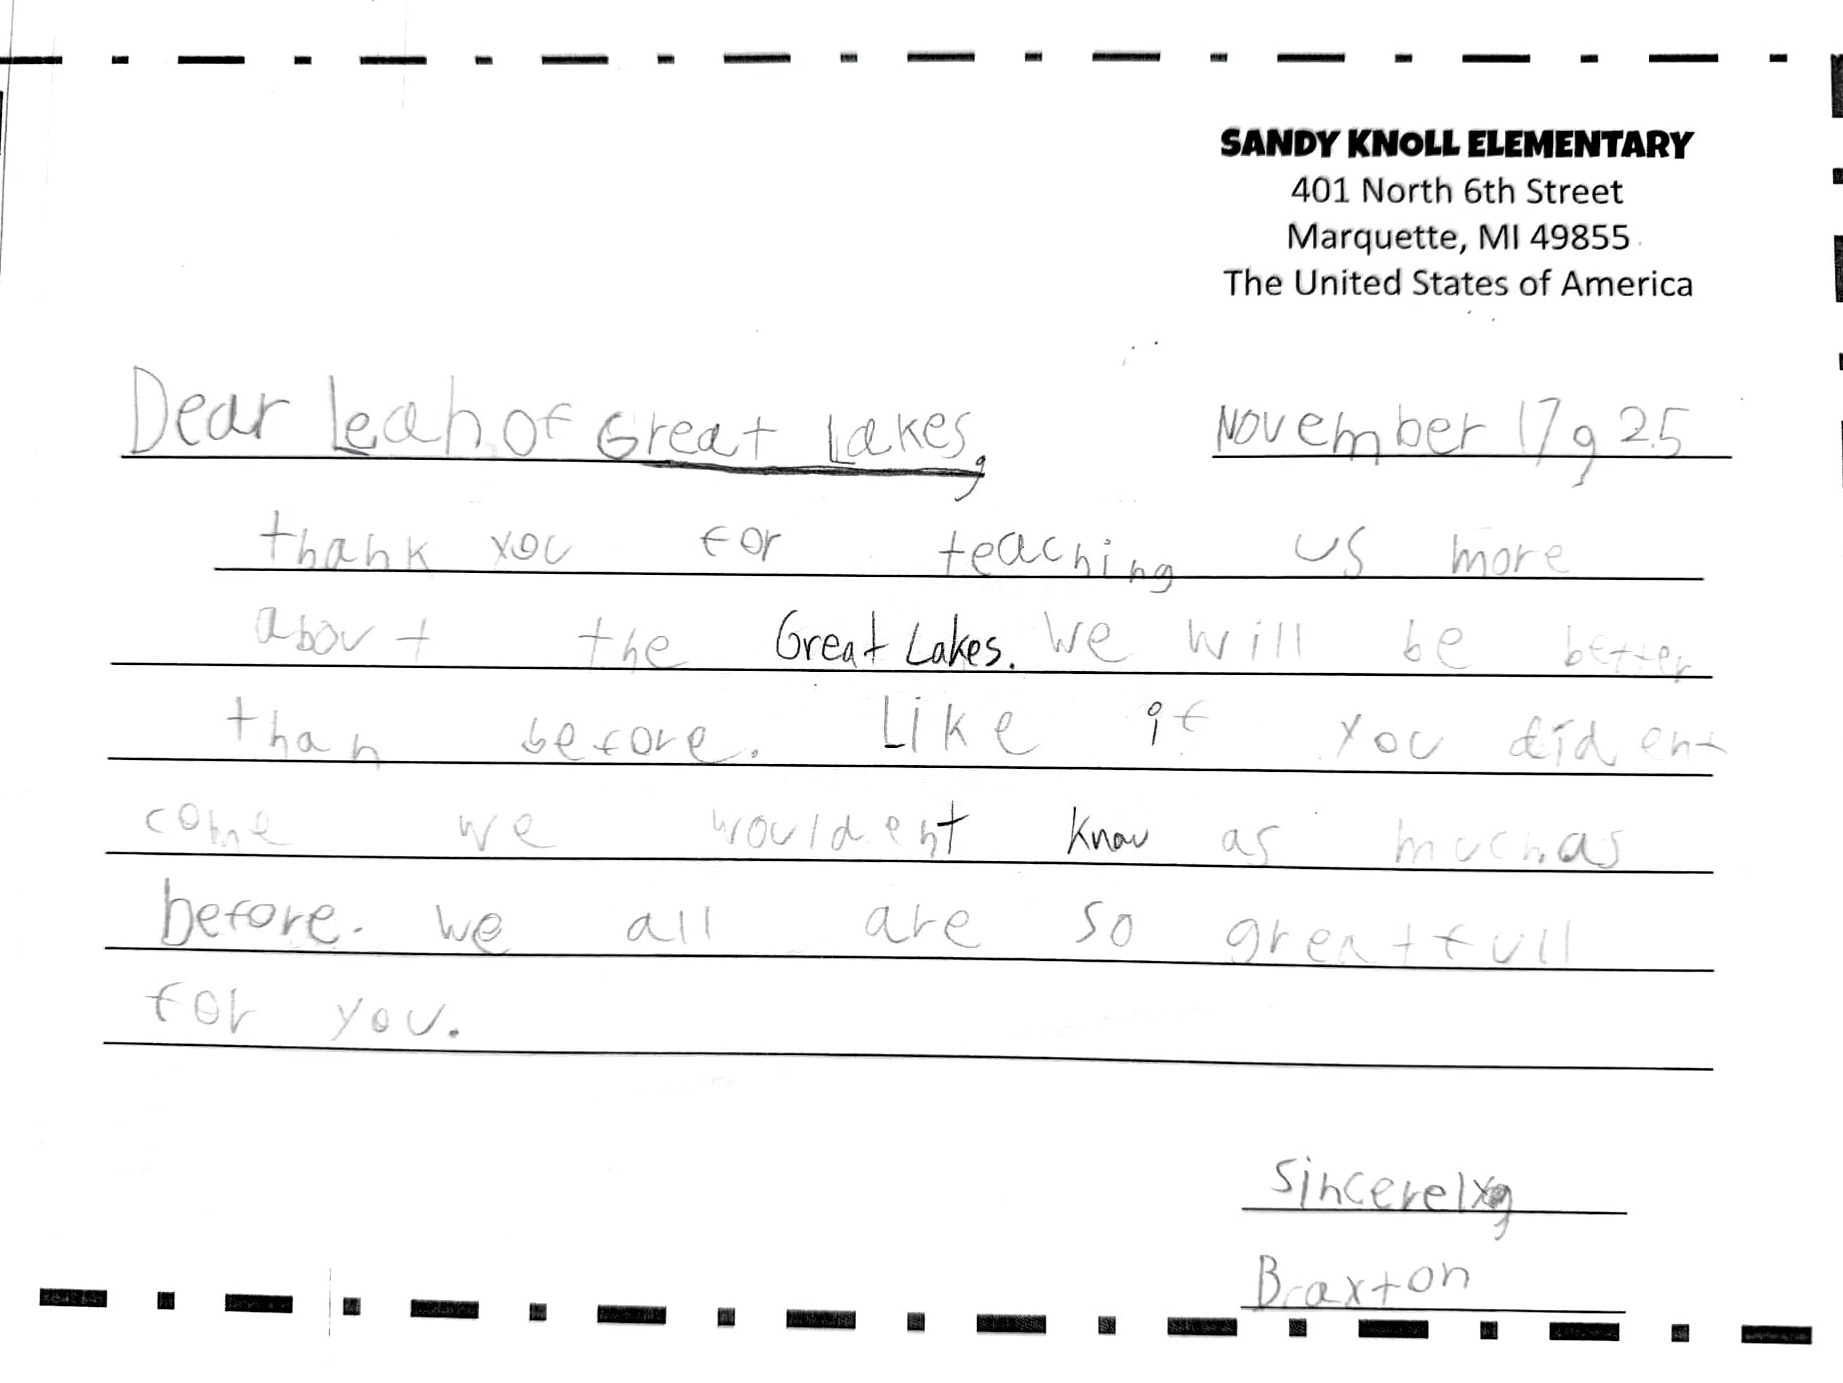 SANDY KNOLL ELEMENTARY
401 North 6th Street
Marquette, MI 49855
The United States of America
Dear Leah of Great Lakes,
November 17, 25
thank you for teaching us more
about the Great Lakes. We will be better
than before. Like if you did ent
come we wouldent know as much as
before. we all are so greatfull
for you.
Sincerely,
Braxton